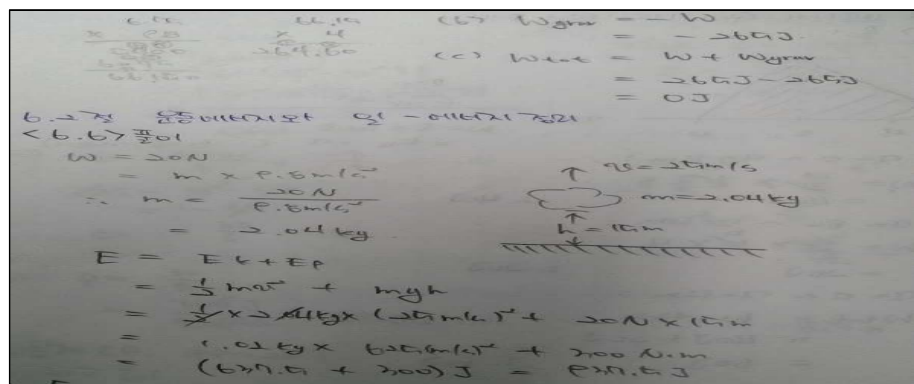 (b) Wgrav = -W
= -265J
(c) Wtot = W + Wgrav
= 265J - 265J
= 0J
6.2절 운동에너지와 일-에너지 정리
<6.6> 풀이
W = 20N
= m × 9.8m/s²
∴ m = 20N / 9.8m/s²
= 2.04kg
↑ v = 25m/s
m = 2.04kg
h = 15m
E = Ek + Ep
= 1/2 mv² + mgh
= 1/2 × 2.04kg × (25m/s)² + 20N × 15m
= 1.02kg × 625(m/s)² + 300 N·m
= (637.5 + 300) J = 937.5J